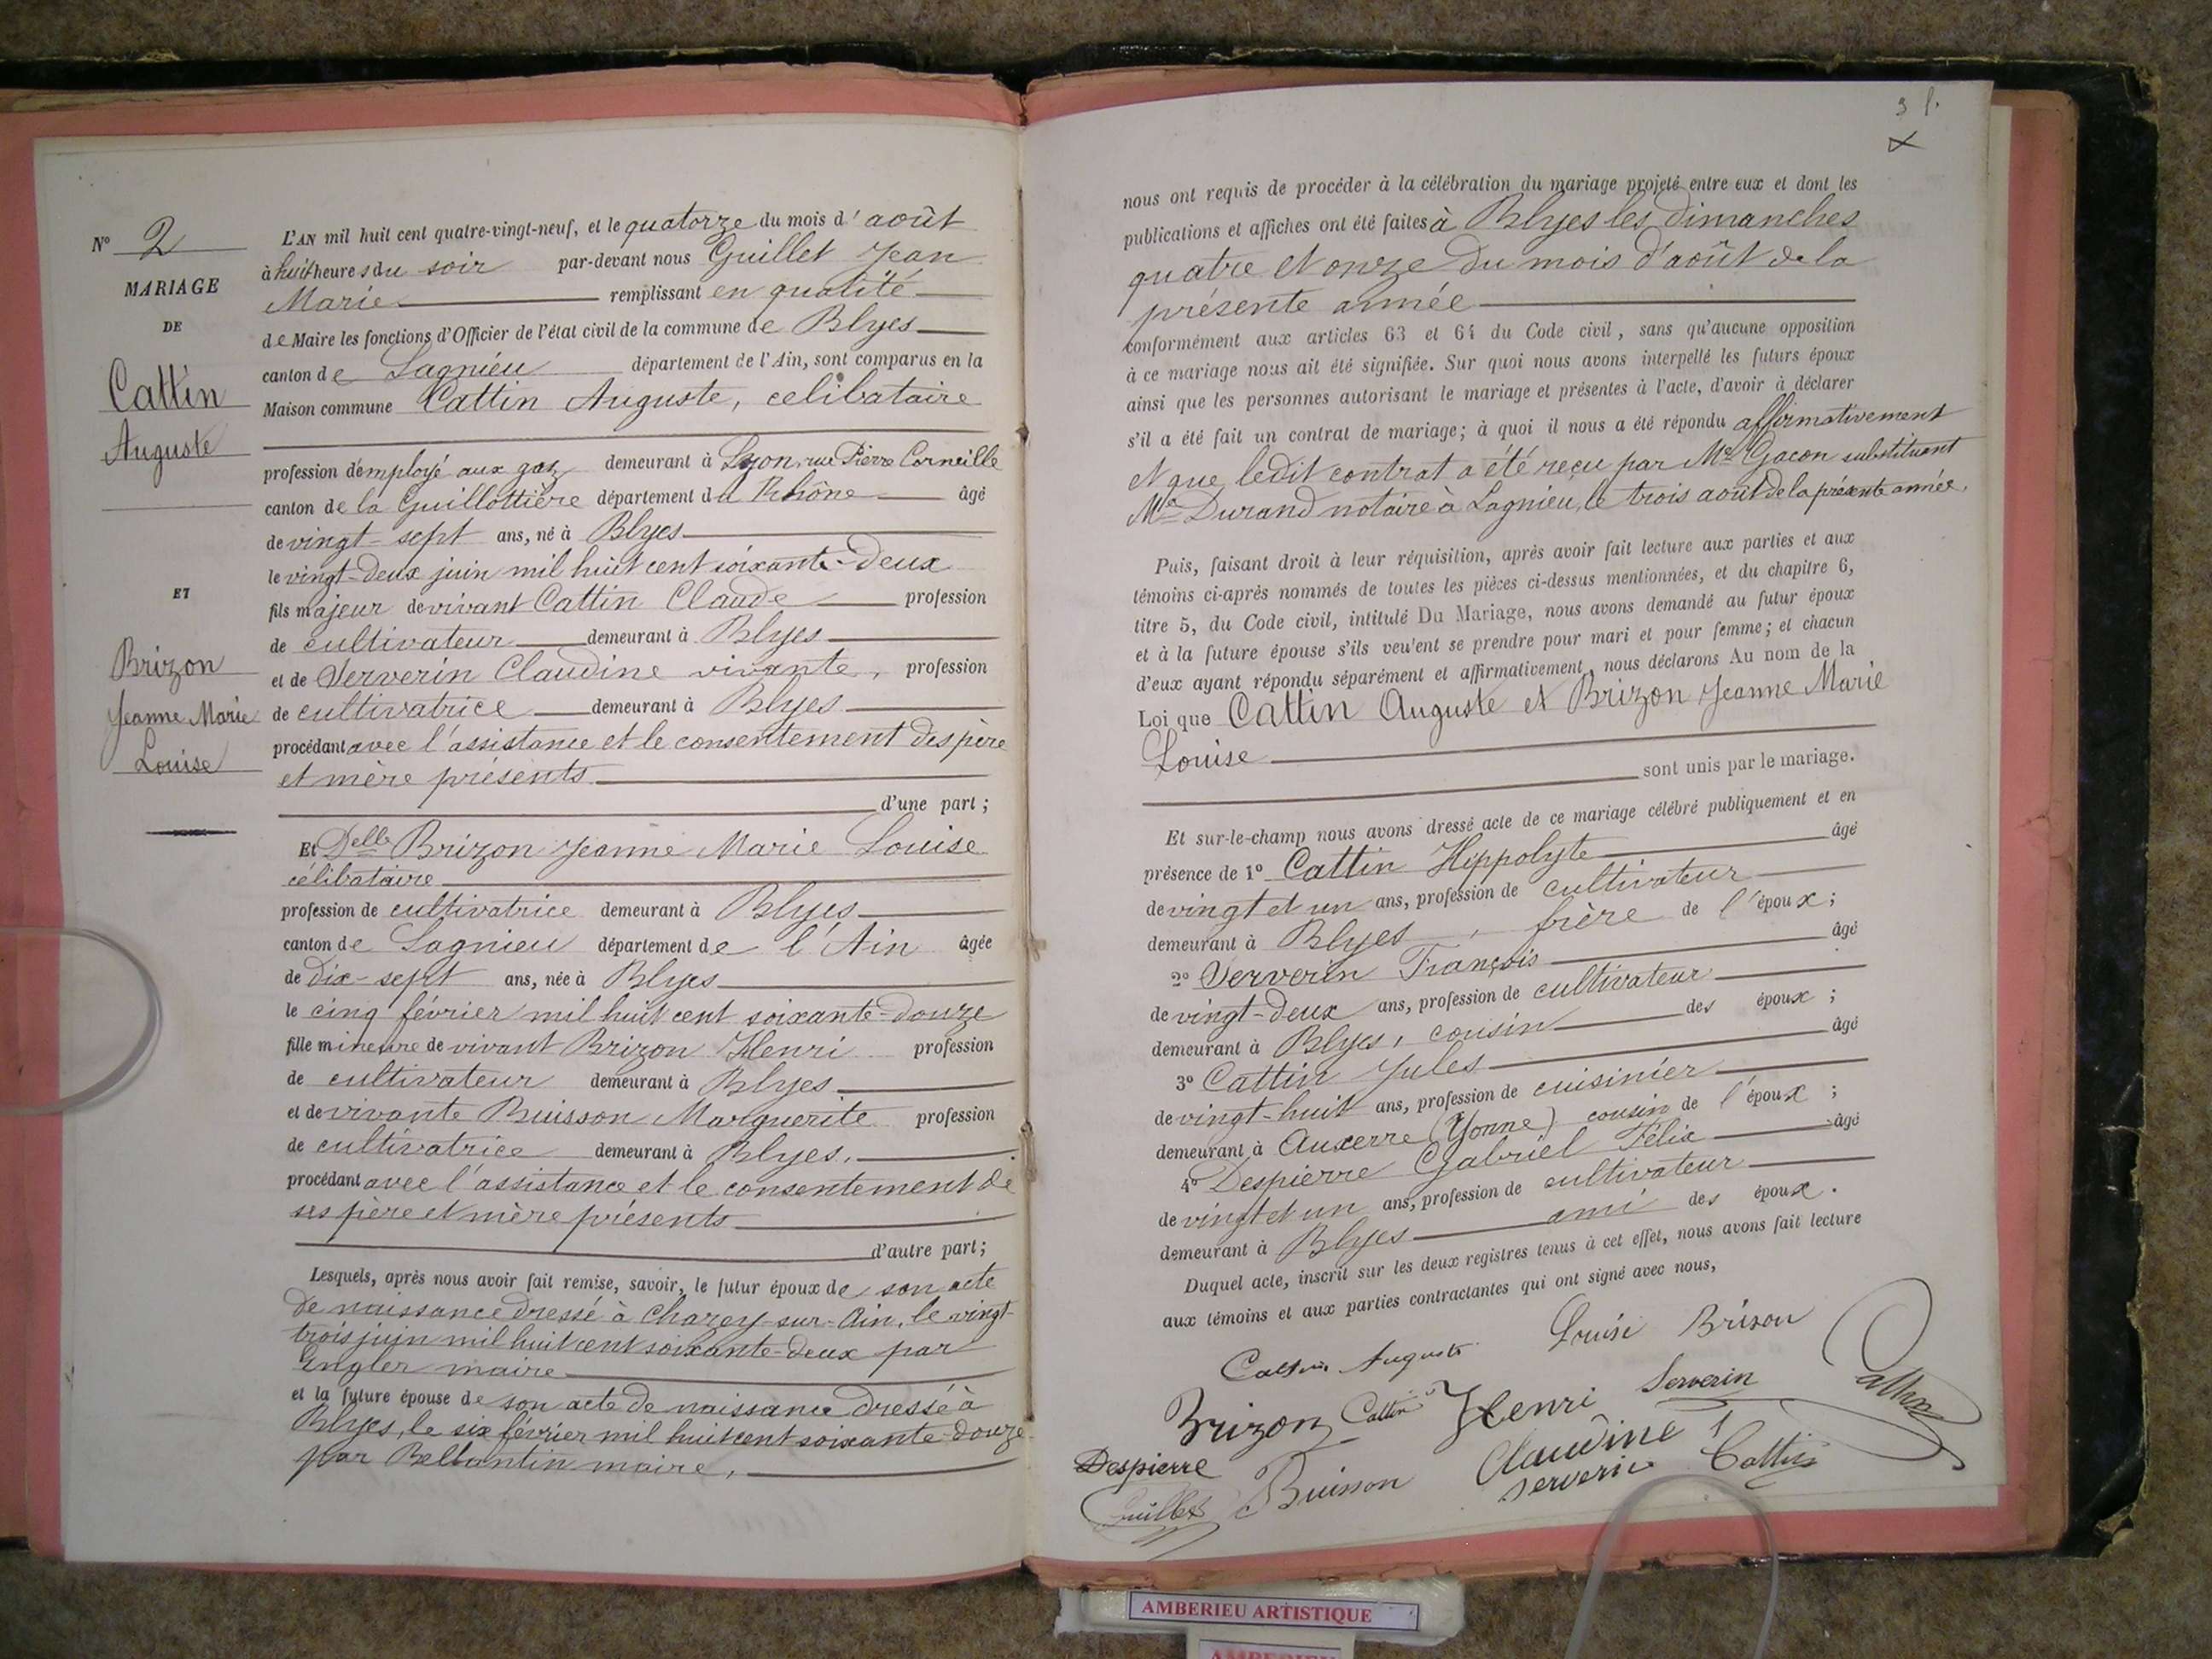 N° 2
MARIAGE
DE
Cattin
Auguste
ET
Brizon
Jeanne Marie
Louise
L'AN mil huit cent quatre-vingt-neuf, et le quatorze du mois d'août
à huit heures du soir par-devant nous Guillet Jean
Marie remplissant en qualité
de Maire les fonctions d'Officier de l'état civil de la commune de Blyes
canton de Lagniéu département de l'Ain, sont comparus en la
Maison commune Cattin Auguste, celibataire
profession d'employé aux gaz demeurant à Lyon, rue Pierre Corneille
canton de la Guillottière département du Rhône âgé
de vingt-sept ans, né à Blyes
le vingt-deux juin mil huit cent soixante-deux
fils majeur de vivant Cattin Claude profession
de cultivateur demeurant à Blyes
et de Serverin Claudine vivante, profession
de cultivatrice demeurant à Blyes
procédant avec l'assistance et le consentement des père
et mère présents
d'une part;
Et Delle Brizon Jeanne Marie Louise
célibataire
profession de cultivatrice demeurant à Blyes
canton de Lagnieu département de l'Ain âgée
de dix-sept ans, née à Blyes
le cinq février mil huit cent soixante-douze
fille mineure de vivant Brizon Henri profession
de cultivateur demeurant à Blyes
et de vivante Buisson Marguerite profession
de cultivatrice demeurant à Blyes.
procédant avec l'assistance et le consentement de
ses père et mère présents
d'autre part;
Lesquels, après nous avoir fait remise, savoir, le futur époux de son acte
de naissance dressé à Charey-sur-Ain, le vingt-
trois juin mil huit cent soixante-deux par
Engler maire
et la future épouse de son acte de naissance dressé à
Blyes, le six février mil huit cent soixante-douze
par Bellantin maire,
3 f.
nous ont requis de procéder à la célébration du mariage projeté entre eux et dont les
publications et affiches ont été faites à Blyes les dimanches
quatre et onze du mois d'août de la
présente année
conformément aux articles 63 et 64 du Code civil, sans qu'aucune opposition
à ce mariage nous ait été signifiée. Sur quoi nous avons interpellé les futurs époux
ainsi que les personnes autorisant le mariage et présentes à l'acte, d'avoir à déclarer
s'il a été fait un contrat de mariage; à quoi il nous a été répondu affirmativement
et que ledit contrat a été reçu par Me Gacon substituant
Me Durand notaire à Lagnieu, le trois août de la présente année.
Puis, faisant droit à leur réquisition, après avoir fait lecture aux parties et aux
témoins ci-après nommés de toutes les pièces ci-dessus mentionnées, et du chapitre 6,
titre 5, du Code civil, intitulé Du Mariage, nous avons demandé au futur époux
et à la future épouse s'ils veulent se prendre pour mari et pour femme; et chacun
d'eux ayant répondu séparément et affirmativement, nous déclarons Au nom de la
Loi que Cattin Auguste et Brizon Jeanne Marie
Louise
sont unis par le mariage.
Et sur-le-champ nous avons dressé acte de ce mariage célébré publiquement et en
présence de 1° Cattin Hippolyte âgé
de vingt et un ans, profession de cultivateur
demeurant à Blyes, frère de l'époux;
2° Serverin François âgé
de vingt-deux ans, profession de cultivateur
demeurant à Blyes, cousin des époux;
3° Cattin Jules âgé
de vingt-huit ans, profession de cuisinier
demeurant à Auxerre (Yonne) cousin de l'époux;
4° Despierre Gabriel Félix âgé
de vingt et un ans, profession de cultivateur
demeurant à Blyes ami des époux.
Duquel acte, inscrit sur les deux registres tenus à cet effet, nous avons fait lecture
aux témoins et aux parties contractantes qui ont signé avec nous,
Louise Brison
Cattin Auguste
Brizon Cattin Henri Serverin Cattin
Despierre Claudine
Guillet Buisson serverin Cattin
AMBERIEU ARTISTIQUE
AMBERIEU